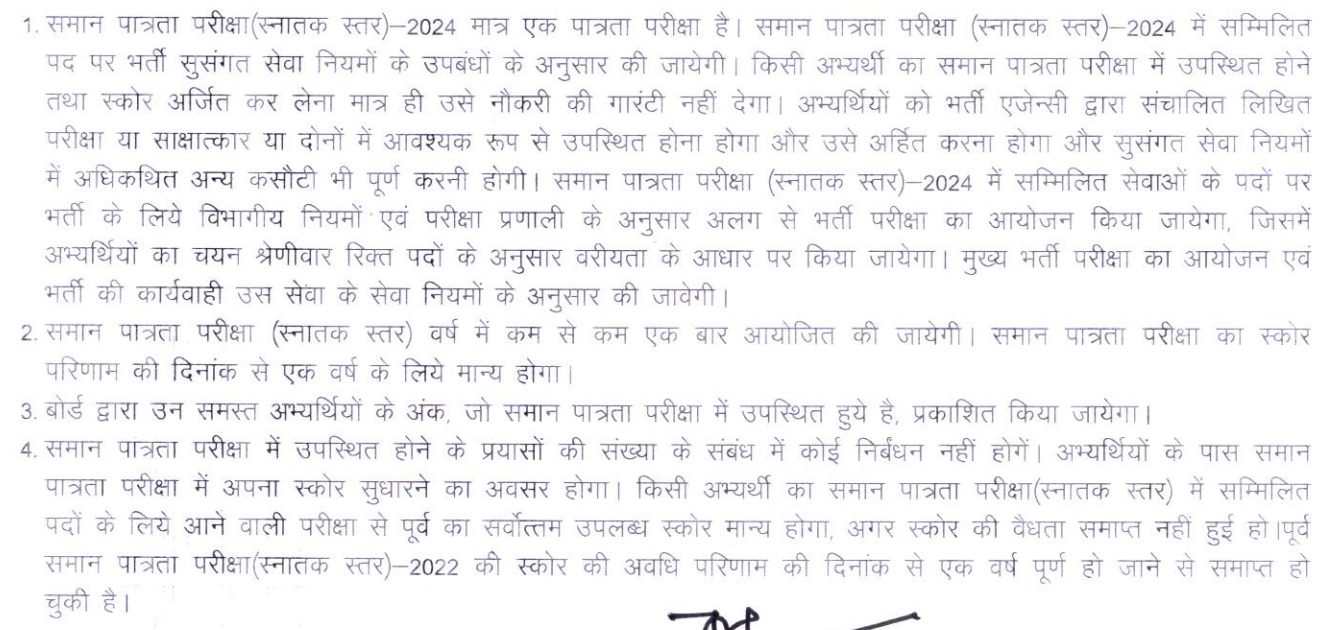 1. समान पात्रता परीक्षा(स्नातक स्तर)–2024 मात्र एक पात्रता परीक्षा है। समान पात्रता परीक्षा (स्नातक स्तर)–2024 में सम्मिलित
पद पर भर्ती सुसंगत सेवा नियमों के उपबंधों के अनुसार की जायेगी। किसी अभ्यर्थी का समान पात्रता परीक्षा में उपस्थित होने
तथा स्कोर अर्जित कर लेना मात्र ही उसे नौकरी की गारंटी नहीं देगा। अभ्यर्थियों को भर्ती एजेन्सी द्वारा संचालित लिखित
परीक्षा या साक्षात्कार या दोनों में आवश्यक रूप से उपस्थित होना होगा और उसे अर्हित करना होगा और सुसंगत सेवा नियमों
में अधिकथित अन्य कसौटी भी पूर्ण करनी होगी। समान पात्रता परीक्षा (स्नातक स्तर)–2024 में सम्मिलित सेवाओं के पदों पर
भर्ती के लिये विभागीय नियमों एवं परीक्षा प्रणाली के अनुसार अलग से भर्ती परीक्षा का आयोजन किया जायेगा, जिसमें
अभ्यर्थियों का चयन श्रेणीवार रिक्त पदों के अनुसार वरीयता के आधार पर किया जायेगा। मुख्य भर्ती परीक्षा का आयोजन एवं
भर्ती की कार्यवाही उस सेवा के सेवा नियमों के अनुसार की जावेगी।
2. समान पात्रता परीक्षा (स्नातक स्तर) वर्ष में कम से कम एक बार आयोजित की जायेगी। समान पात्रता परीक्षा का स्कोर
परिणाम की दिनांक से एक वर्ष के लिये मान्य होगा।
3. बोर्ड द्वारा उन समस्त अभ्यर्थियों के अंक, जो समान पात्रता परीक्षा में उपस्थित हुये है, प्रकाशित किया जायेगा।
4. समान पात्रता परीक्षा में उपस्थित होने के प्रयासों की संख्या के संबंध में कोई निर्बंधन नहीं होगें। अभ्यर्थियों के पास समान
पात्रता परीक्षा में अपना स्कोर सुधारने का अवसर होगा। किसी अभ्यर्थी का समान पात्रता परीक्षा(स्नातक स्तर) में सम्मिलित
पदों के लिये आने वाली परीक्षा से पूर्व का सर्वोत्तम उपलब्ध स्कोर मान्य होगा, अगर स्कोर की वैधता समाप्त नहीं हुई हो।पूर्व
समान पात्रता परीक्षा(स्नातक स्तर)–2022 की स्कोर की अवधि परिणाम की दिनांक से एक वर्ष पूर्ण हो जाने से समाप्त हो
चुकी है।